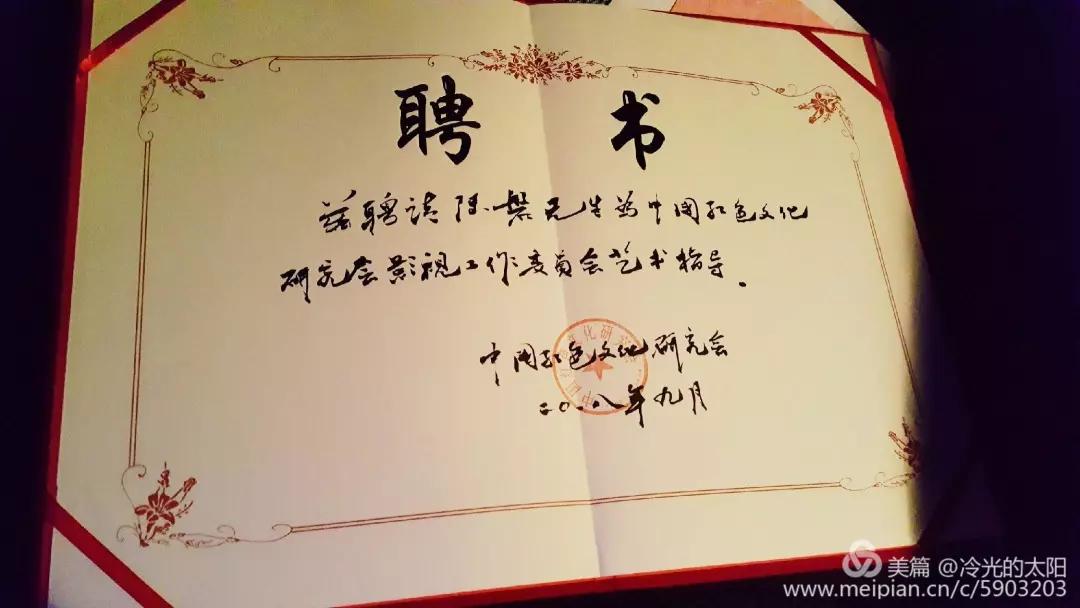 聘 书
兹聘请陈 先生为中国红色文化
研究会影视工作委员会艺术指导.
中国红色文化研究会
二〇一八年九月
美篇 @冷光的太阳
www.meipian.cn/c/5903203